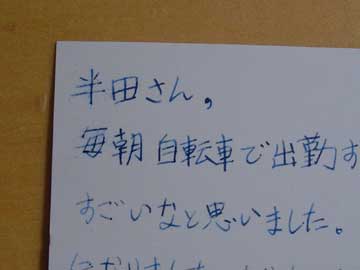 半田さん,
毎朝自転車で出勤す
すごいなと思いました。